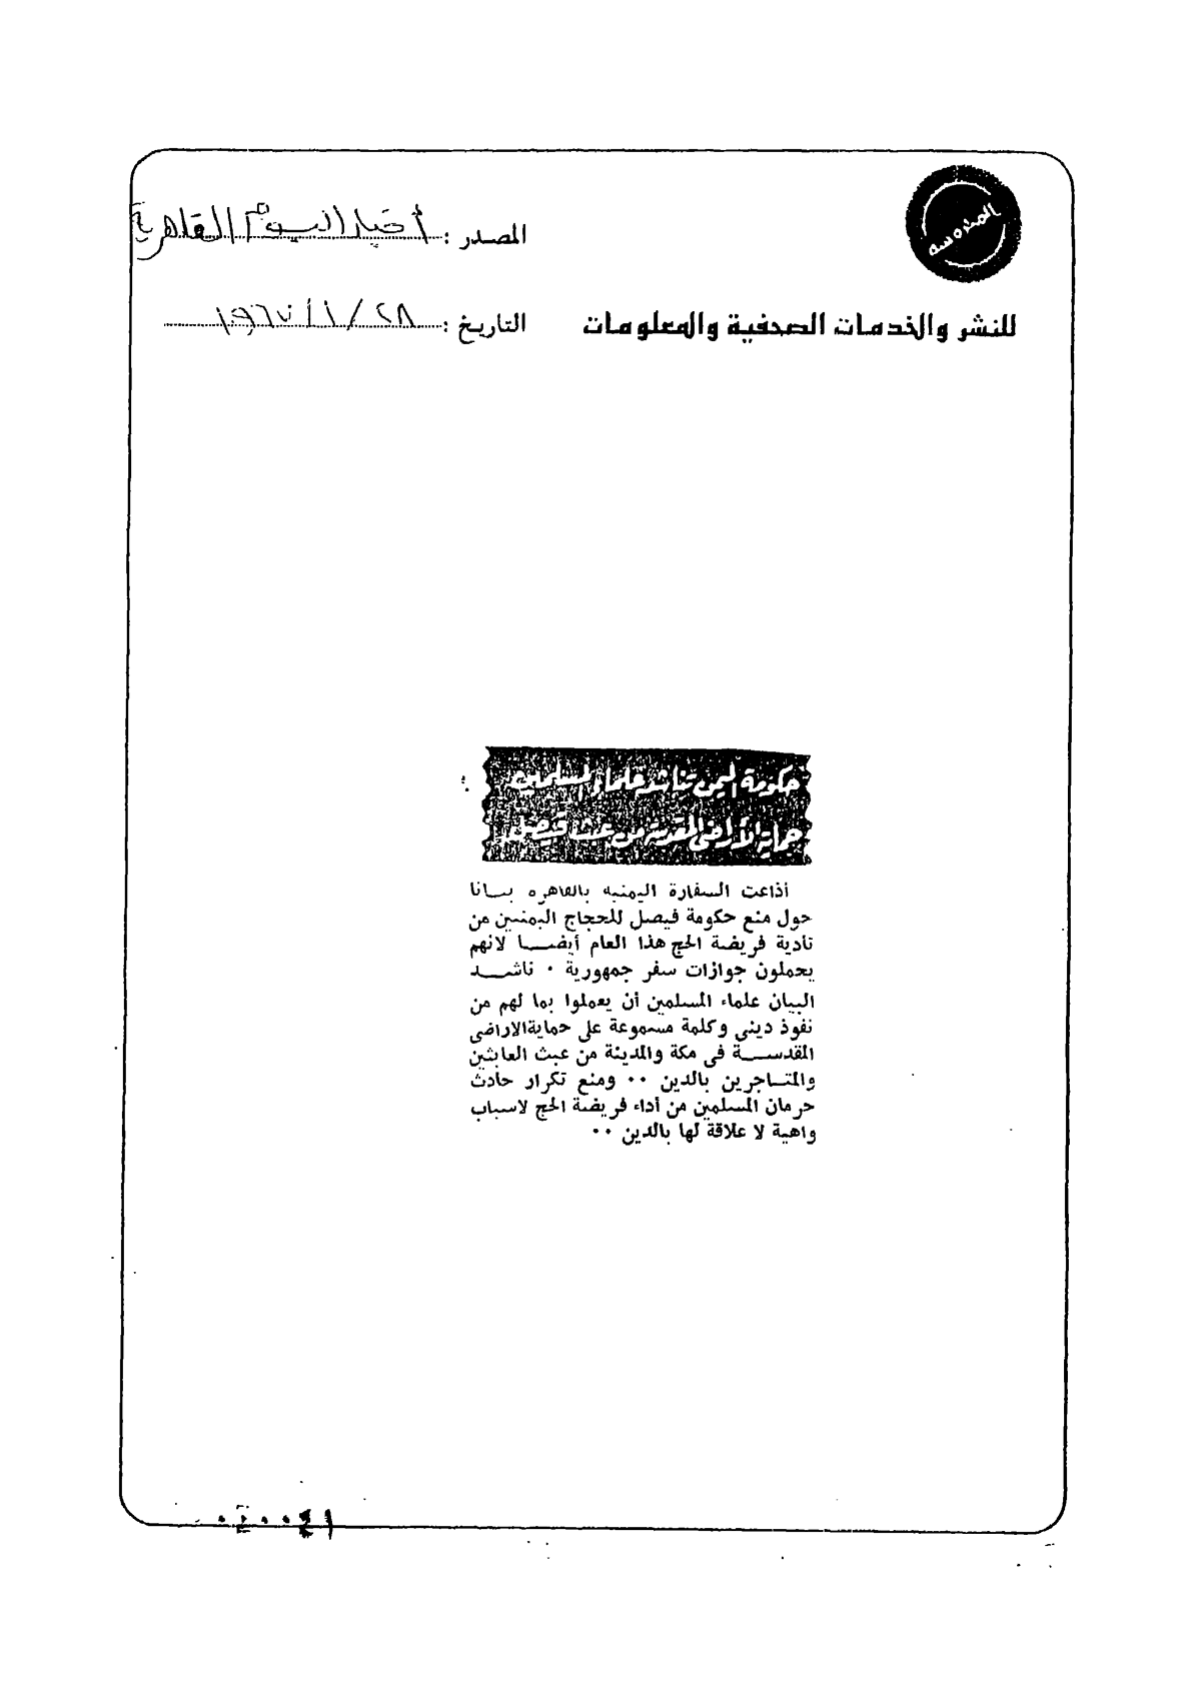 المحروسة
المصدر : أخبار اليوم القاهرية
للنشر والخدمات الصحفية والمعلومات
التاريخ : ٢٨ / ١ / ١٩٦٧
حكومة اليمن تناشد علماء المسلمين
حماية الأراضى المقدسة من عبث فيصل
أذاعت السفارة اليمنية بالقاهرة بيـانا
حول منع حكومة فيصل للحجاج اليمنيين من
تأدية فريضة الحج هذا العام أيضـا لانهم
يحملون جوازات سفر جمهورية . ناشـد
البيان علماء المسلمين أن يعملوا بما لهم من
نفوذ دينى وكلمة مسموعة على حماية الاراضى
المقدسـة فى مكة والمدينة من عبث العابثين
والمتـاجرين بالدين .. ومنع تكرار حادث
حرمان المسلمين من أداء فريضة الحج لاسباب
واهية لا علاقة لها بالدين ..